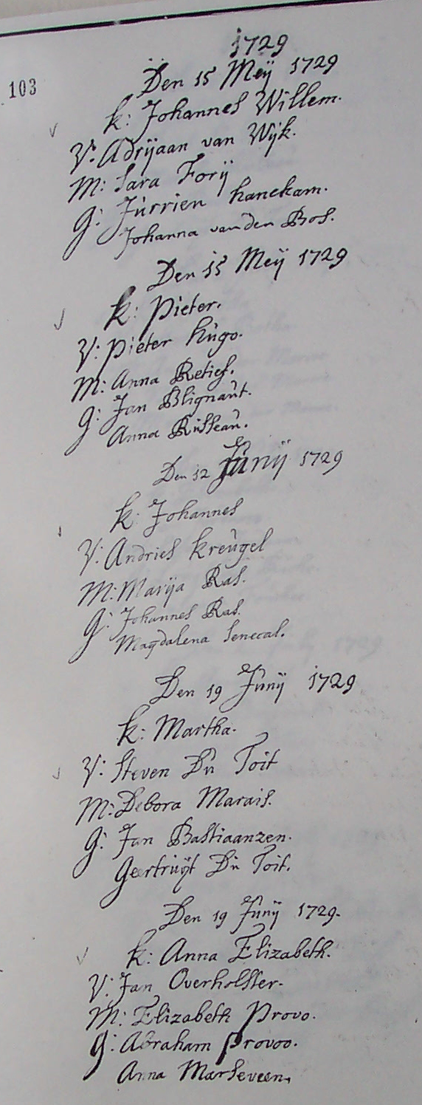 1729
103
Den 15 Meÿ 1729
k: Johannes Willem.
V: Adrÿaan van Wÿk.
M: Sara Forÿ
G: Jurrien hanekam.
Johanna van den Bos.
Den 15 Meÿ 1729
k: Pieter.
V: Pieter hugo.
M: Anna Retief.
G: Jan Blignaut.
Anna Rousseau.
Den 12 Junÿ 1729
k: Johannes
V: Andries kreugel
M: Marÿa Ras.
G: Johannes Ras.
Magdalena Senecal.
Den 19 Junÿ 1729
k: Martha.
V: Steven Du Toit
M: Debora Marais.
G: Jan Bastiaanzen.
Gertruÿt Du Toit.
Den 19 Junÿ 1729.
k: Anna Elizabeth.
V: Jan Overholster.
M: Elizabeth Provo.
G: Abraham provoo.
Anna Marseveen.